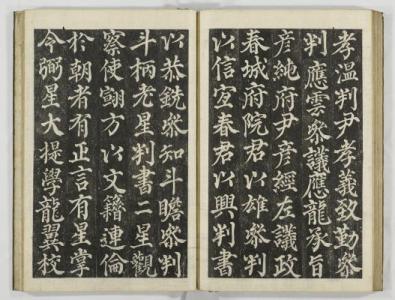 孝溫判尹孝義致勤叅
判應雲叅議應龍承旨
彦純府尹彦經左議政
春城府院君以雄叅判
以信宜春君以興判書
以恭銑叅知斗瞻叅判
斗柄老星判書二星觀
察使翧方以文籍連倫
於朝者有正言有星掌
令弼星大提學龍翼校